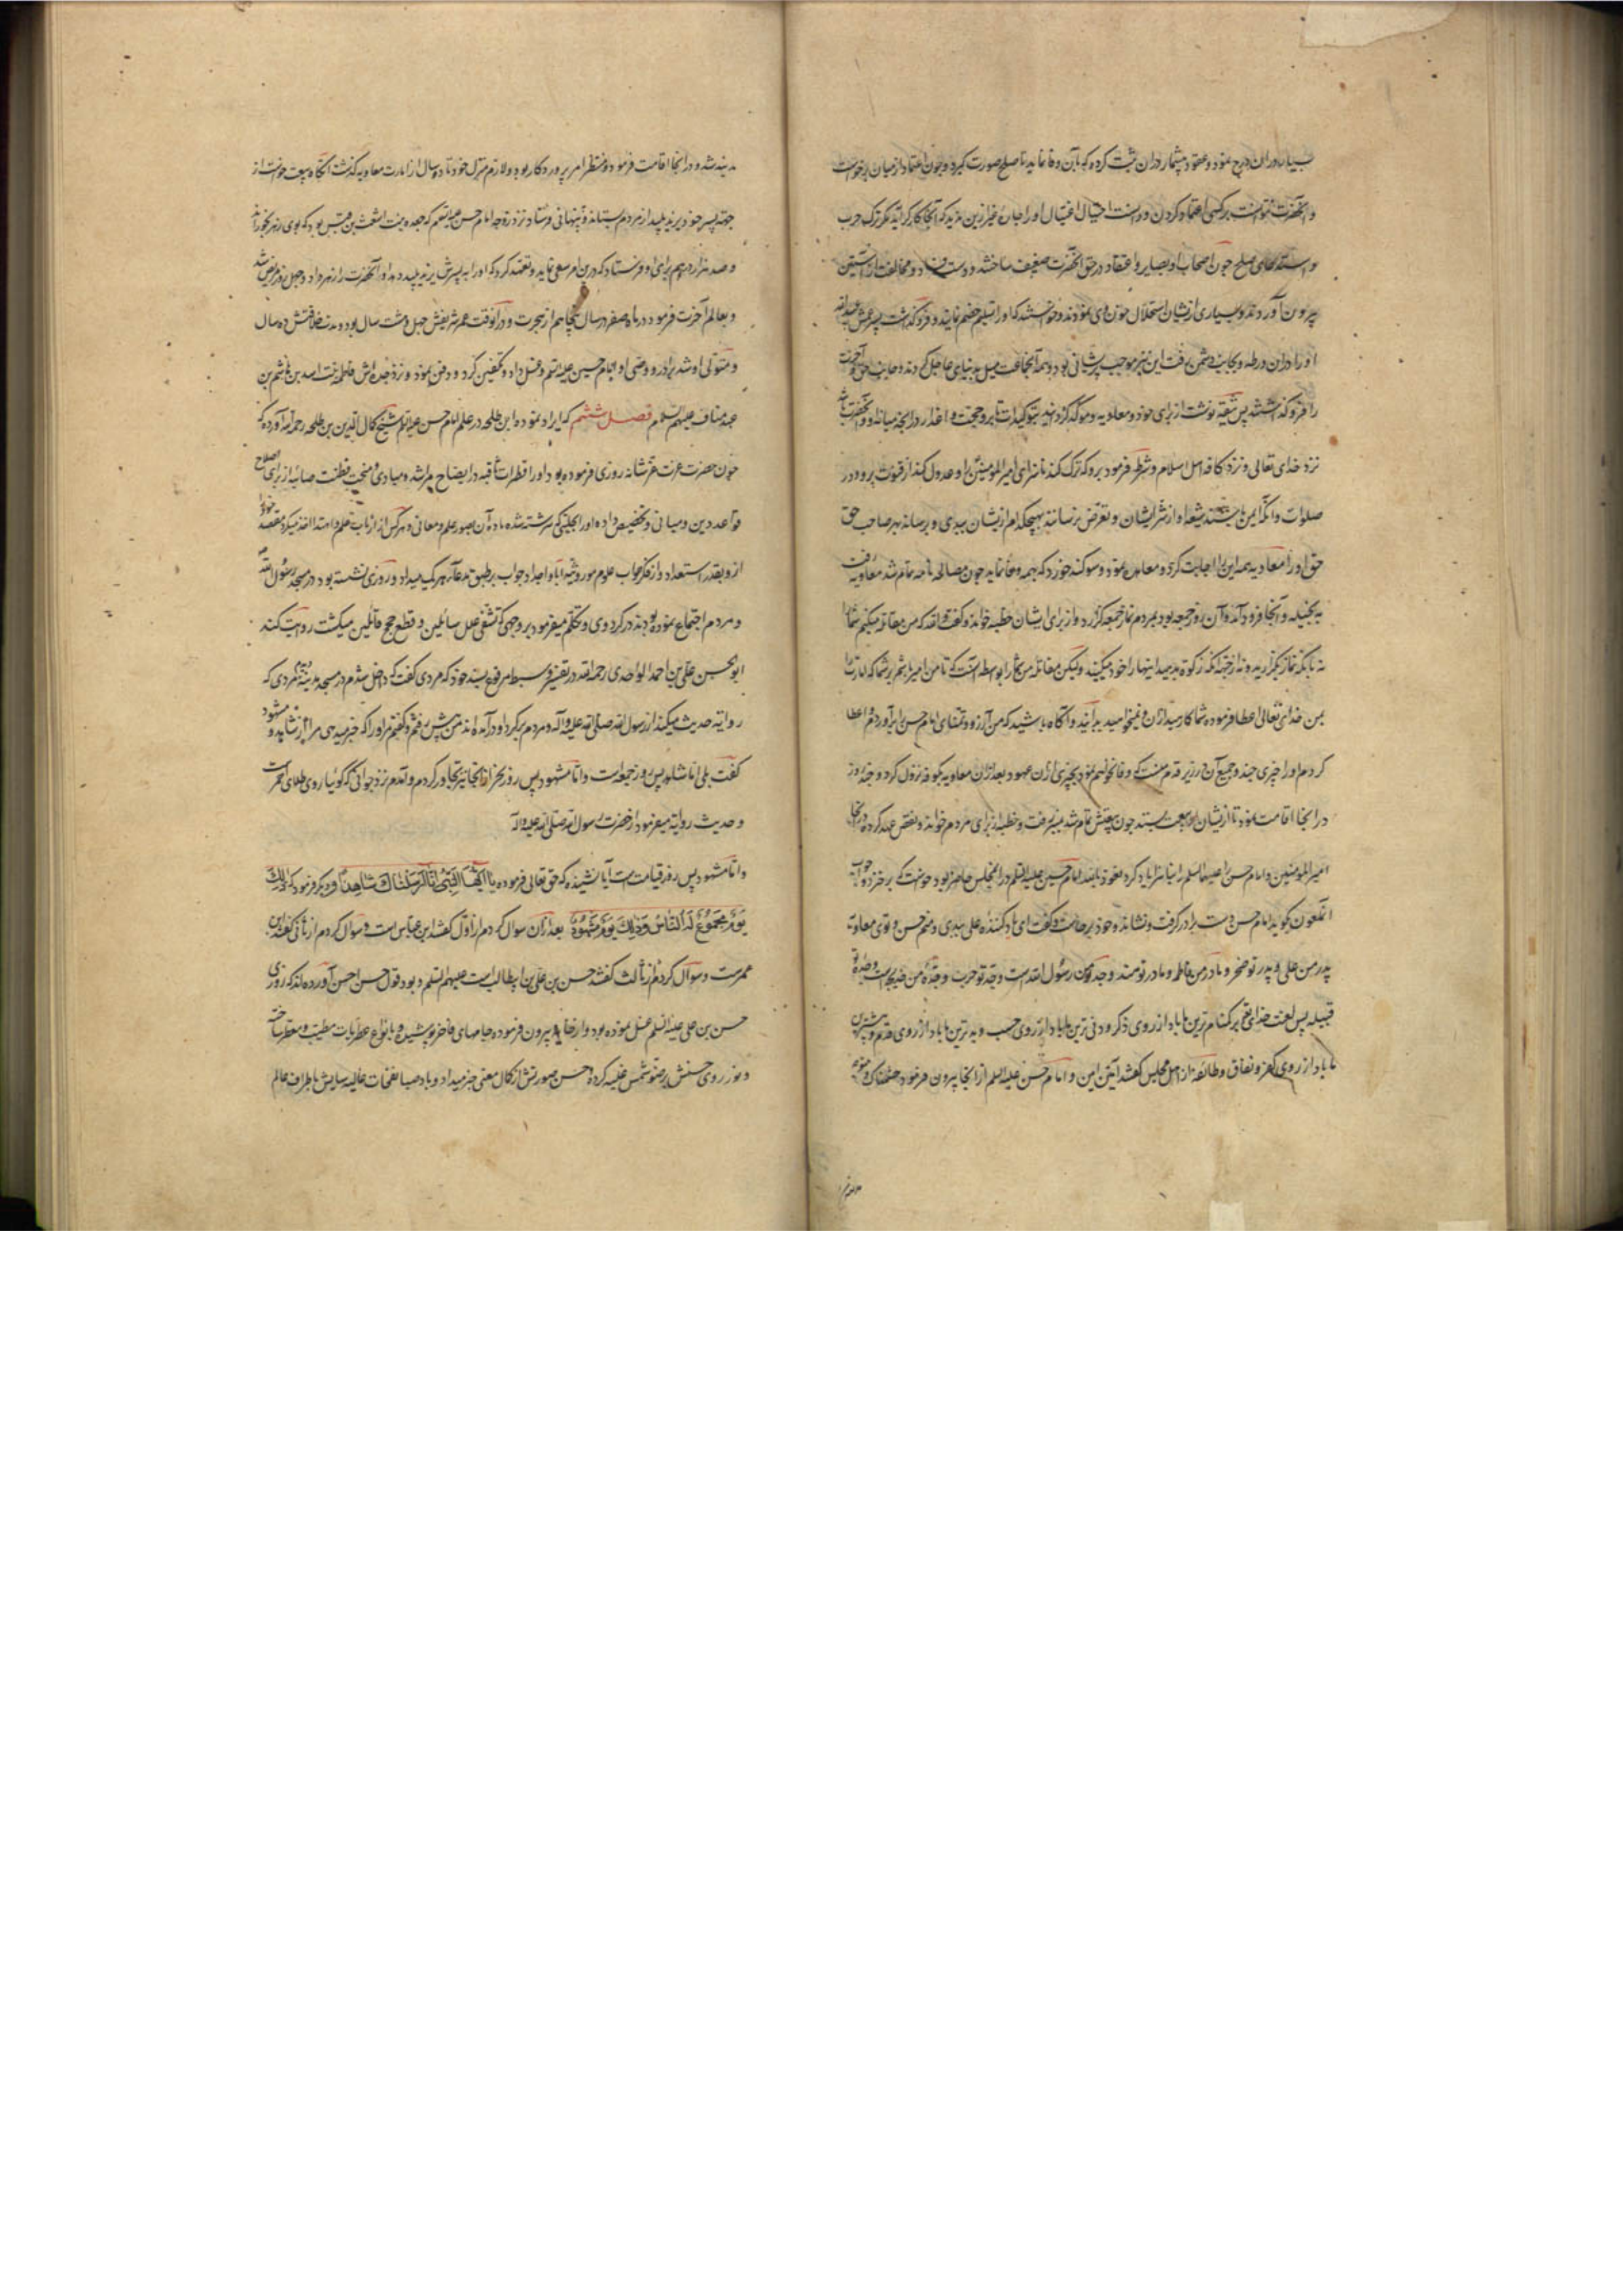 بسیار در ان درج نمود و عقود بیشمار در ان ثبت کرده که بآن وفا نماید تا صلح صورت گیرد و چون اعتماد از میان برخواست
و آنحضرت نتوانست برکسی اعتماد کردن و دانست احتیال و اغتیال او را جاره غیر ازین ندید که ترک حرب
و استدعای صلح چون اصحاب او بصایر و اعتقاد در حق آنحضرت ضعیف ساختند و دست فساد و مخالفت از آستین
بیرون آوردند و بسیاری ازیشان استحلال خون وی نمودند و خواستند که او را تسلیم خصم نمایند و فروگذاشت پسر عمش عبید الله
او را دران ورطه و بجانب دشمن رفت این نیز موجب پریشانی بود و همه آنجماعت میل بدنیای عاجل کردند و جانب حق و آخرت
را فرو گذاشتند پس وثیقه نوشت از برای خود و معاویه و موکد گردانید بتوکیدات تا برو حجت و اعذار در آنچه میانه او و آنحضرت باشد
نزد خدای تعالی و نزد کافه اهل اسلام و شرط فرمود برو که ترک کند ناسزای امیر المومنین را و عدول کند از قنوت برو در
صلوات و آنکه ایمن باشند شیعه او از شر ایشان و تعرض نرسانند بهیچکدام ازیشان ببدی و برساند بهر صاحب حق
حق او را معاویه همه این را اجابت کرد و معاهده نمود و سوگند خورد که بهمه وفا نماید چون مصالحه تمام شد معاویه رفت
به نخیله و آنجا فرود آمد و آن روز جمعه بود بمردم نماز جمعه گزارد و از برای ایشان خطبه خواند و گفت والله که من مقاتله نمیکنم شما را
نه تا بآنکه نماز بگزارید و نه از جهة آنکه زکوة بدهید اینها را خود میکنید ولیکن مقاتله من بشما بواسطه آنست که تا من امیر باشم بر شما که امارت را
بمن خدای تعالی اعطا فرموده شما کارهید ازان و نمیخواهید بدانید و آگاه باشید که من آرزو و تمنای امام حسن را برآوردم و اعطا
کردم او را چیزی چند و جمیع آن در زیر قدم منست که وفا نخواهم نمود بچیزی ازان عهود بعد ازان معاویه بکوفه نزول کرد و چند روز
در انجا اقامت نمود تا ازیشان بیعت ستد چون بیعتش تمام شد بمنبر رفت و خطبه از برای مردم خواند و نقض عهد کرده در انجا
امیر المومنین و امام حسن را علیهما السلم را بناسزا یاد کرد نعوذ بالله امام حسین علیه السلم در انمجلس حاضر بود خواست که برخیزد و جواب
آنملعون گوید امام حسن دست برادر گرفت و نشاند و خود برخاست و گفت ای یاد کننده علی ببدی منم حسن و توی معاویه
پدر من علی و پدر تو صخر و مادر من فاطمه و مادر تو هند و جد من رسول الله است و جد تو حرب و جده من خدیجه است و جده تو
قبیله پس لعنت خدای بر گمنام ترین ما باد از روی ذکر و دنی ترین ما باد از روی حسب و بد ترین ما باد از روی قدم و پیشترین
ما باد از روی کفر و نفاق و طائفه از اهل مجلس گفتند آمین آمین و امام حسن علیه السلم از انجا بیرون فرمود خشمناک و متوجه
مدینه شد و در انجا اقامت فرمود و منتظر امر پروردگار بود و ملازم منزل خود تا ده سال از امارت معاویه گذشت آنگاه بیعت خواست از
جهة پسر خود یزید پلید از مردم بستاند و پنهانی فرستاد نزد زوجه امام حسن علیه السلم که جعده بنت اشعث بن قیس بود که بوی زهر بخوراند
و صد هزار درهم برای او فرستاد که درین امر سعی نماید و تعهد کرد که او را به پسرش یزید پلید دهد او آنحضرت را زهر داد و چهل روز مریض شد
و بعالم آخرت فرمود در ماه صفر در سال پنجاهم از هجرت و در آنوقت عمر شریفش چهل و هشت سال بود و مدت خلافتش ده سال
و متولی او شد برادر و وصی او امام حسین علیه السلم و غسل داد و تکفین کرد و دفن نمود نزد جده اش فاطمه بنت اسد بن هاشم بن
عبد مناف علیهم السلم فصل ششم که ایراد نموده ابن طلحه در علم امام حسن علیه السلم شیخ کمال الدین بن طلحه رحمه الله آورده که
چون حضرت عزت عز شانه روزی فرموده بود او را فطرت ثاقبه در ایضاح مراشد و مبادی و منحت فطنت صائبه از برای اصلاح
قواعد دین و مبانی و تخصیص داده او را بجبلتی که سرشته شده ماده آن بصور علم و معانی و هر کس از ارباب علم و اهتدا اخذ میکرد مقصد خود
ازو بقدر استعداد و از فکر جواب علوم موروثه آبا و اجداد جواب بر طبق مدعا بهر یک میداد و روزی نشسته بود در مسجد رسول الله
و مردم اجتماع نموده بودند در گرد وی و تکلم میفرمود بر وجهی که تشفی علل سائلین و قطع حجج قائلین میگشت روایت کند
ابو الحسن علی بن احمد الواحدی رحمه الله در تفسیر وسیط مرفوع بسند خود که مردی گفت که داخل شدم در مسجد مدینه دیدم مردی که
روایة حدیث میکند از رسول الله صلی الله علیه و آله و مردم بر گرد او در آمده اند من پیش رفتم و گفتم مر او را که خبر میدهی مرا از شاهد و مشهود
گفت بلی اما شاهد پس روز جمعه است و اما مشهود پس روز نحر از انجا نیز تجاوز کردم و آمدم نزد جوانی که گوئیا روی طلای احمر است
و حدیث روایة میفرمود از حضرت رسول الله صلی الله علیه و آله
و اما مشهود پس روز قیامت است آیا نشنیده که حق تعالی فرموده یا ایها النبی انا ارسلناک شاهدا و دیگر فرمود که ذلک
یوم مجموع له الناس وذلک یوم مشهود بعد ازان سوال کردم از اول گفتند ابن عباس است و سوال کردم از ثانی گفتند ابن
عمرست و سوال کردم از ثالث گفتند حسن بن علی بن ابیطالب است علیهم السلم و بود قول حسن احسن آورده اند که روزی
حسن بن علی علیه السلم غسل نموده بود و از خانه بیرون فرموده جامهای فاخر پوشیده و بانواع عطریات مطیب و معطر ساخته
و نور روی حسنش بر ضوء شمس غلبه کرده و حسن صورتش از کمال معنی خبر میداد و باد صبا نفحات غالیه سایش باطراف عالم